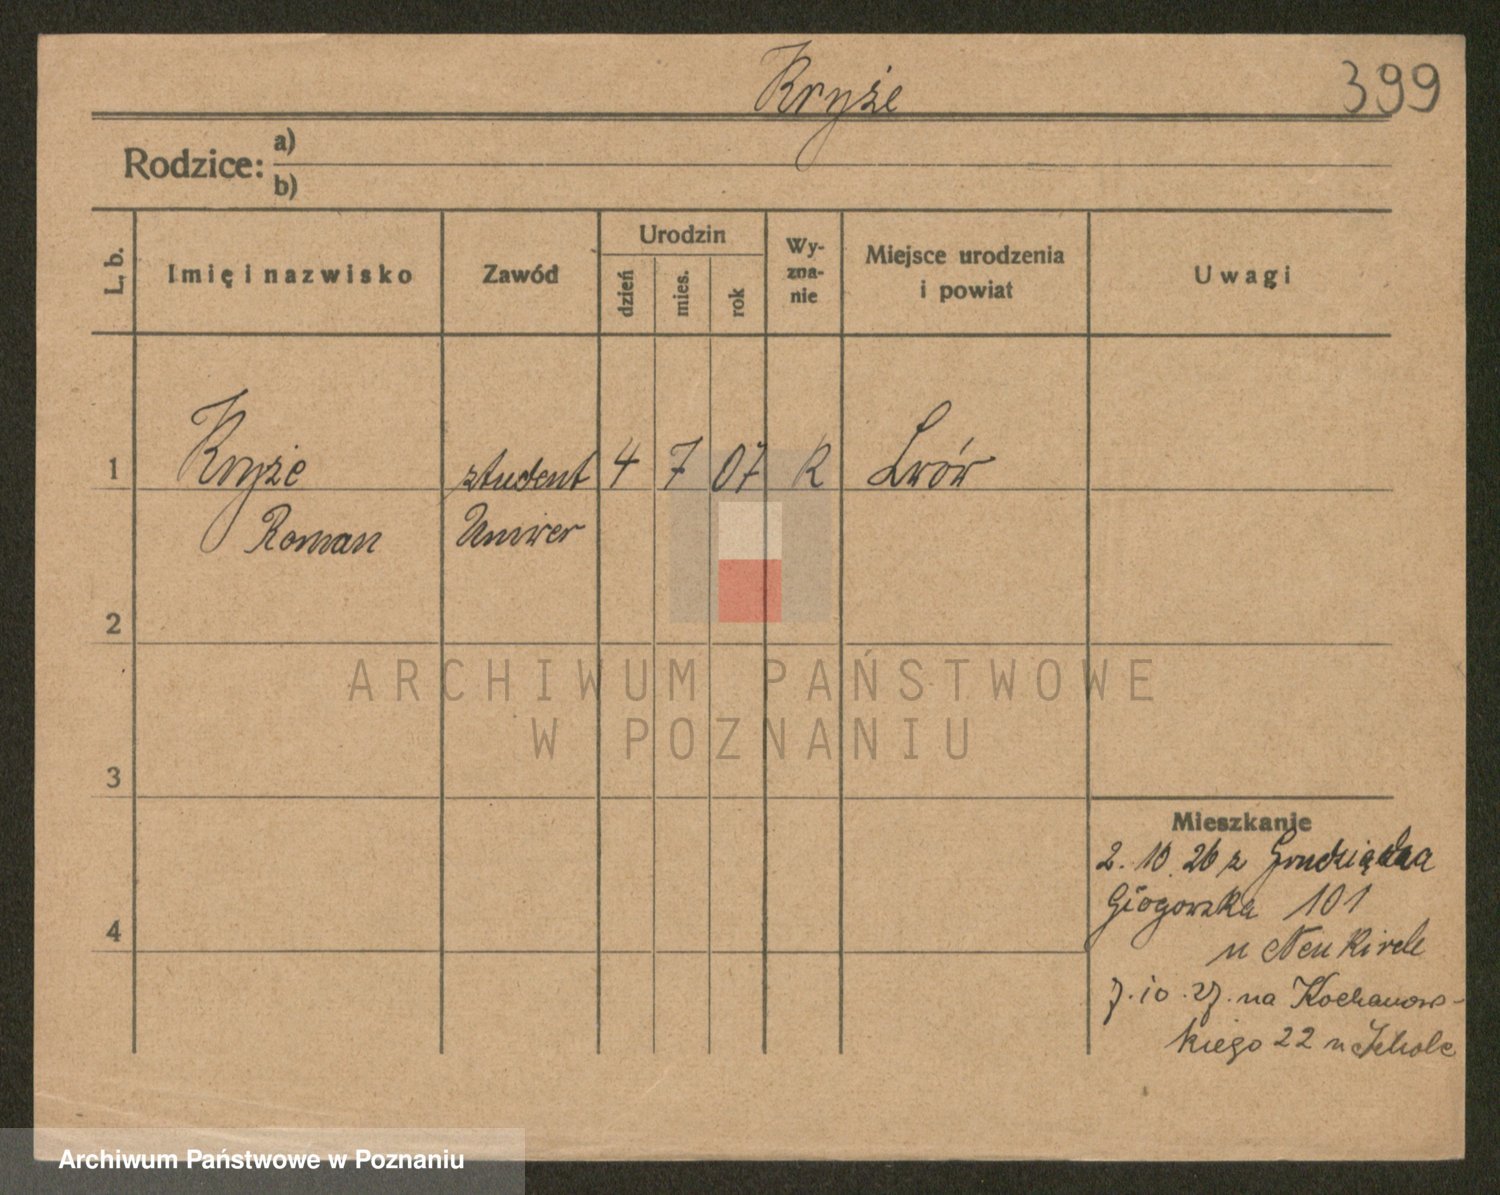 Kryże
399
Rodzice: a)
b)
L. b.
Imię i nazwisko
Zawód
Urodzin
dzień
mies.
rok
Wy-
zna-
nie
Miejsce urodzenia
i powiat
Uwagi
1
Kryże
student
4
7
07
R
Lwów
Roman
Uniwer
2
3
4
Mieszkanie
2. 10. 26 z Grudziądza
Głogowska 101
u Neukirch
7. 10. 27. na Kochanows-
kiego 22 u
ARCHIWUM PAŃSTWOWE
W POZNANIU
Archiwum Państwowe w Poznaniu